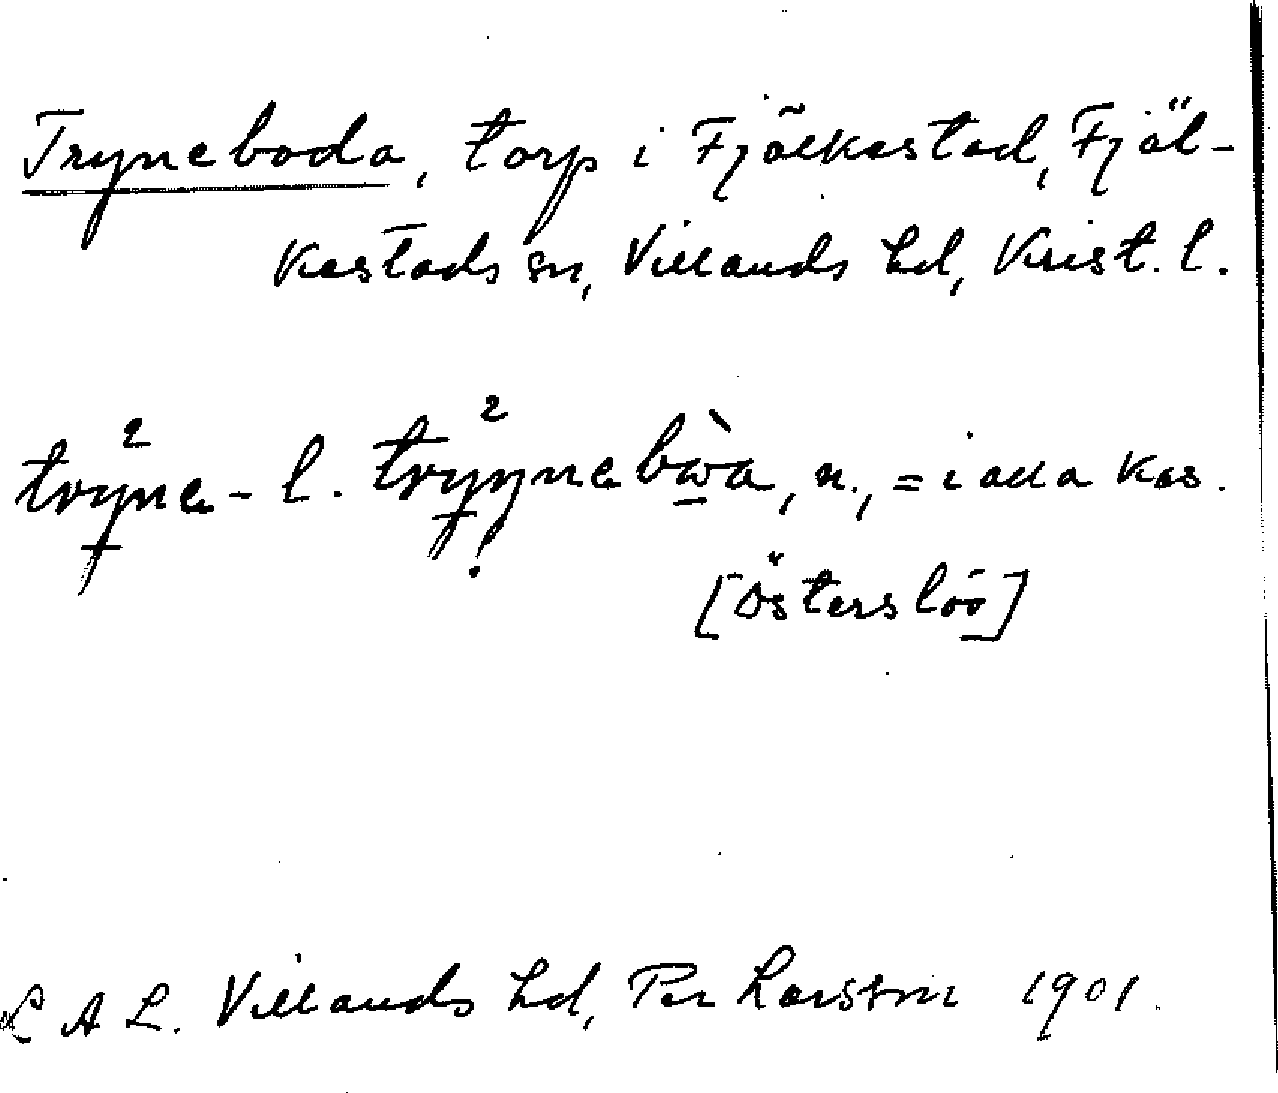 Tryneboda, torp i Fjälkestad, Fjäl-
kestads sn, Villands hd, Krist. l.
trÿne- l. trÿynebẁa, n., = i alla kas.
[Österslöv]
L A L. Villands hd, Per Larsson 1901.